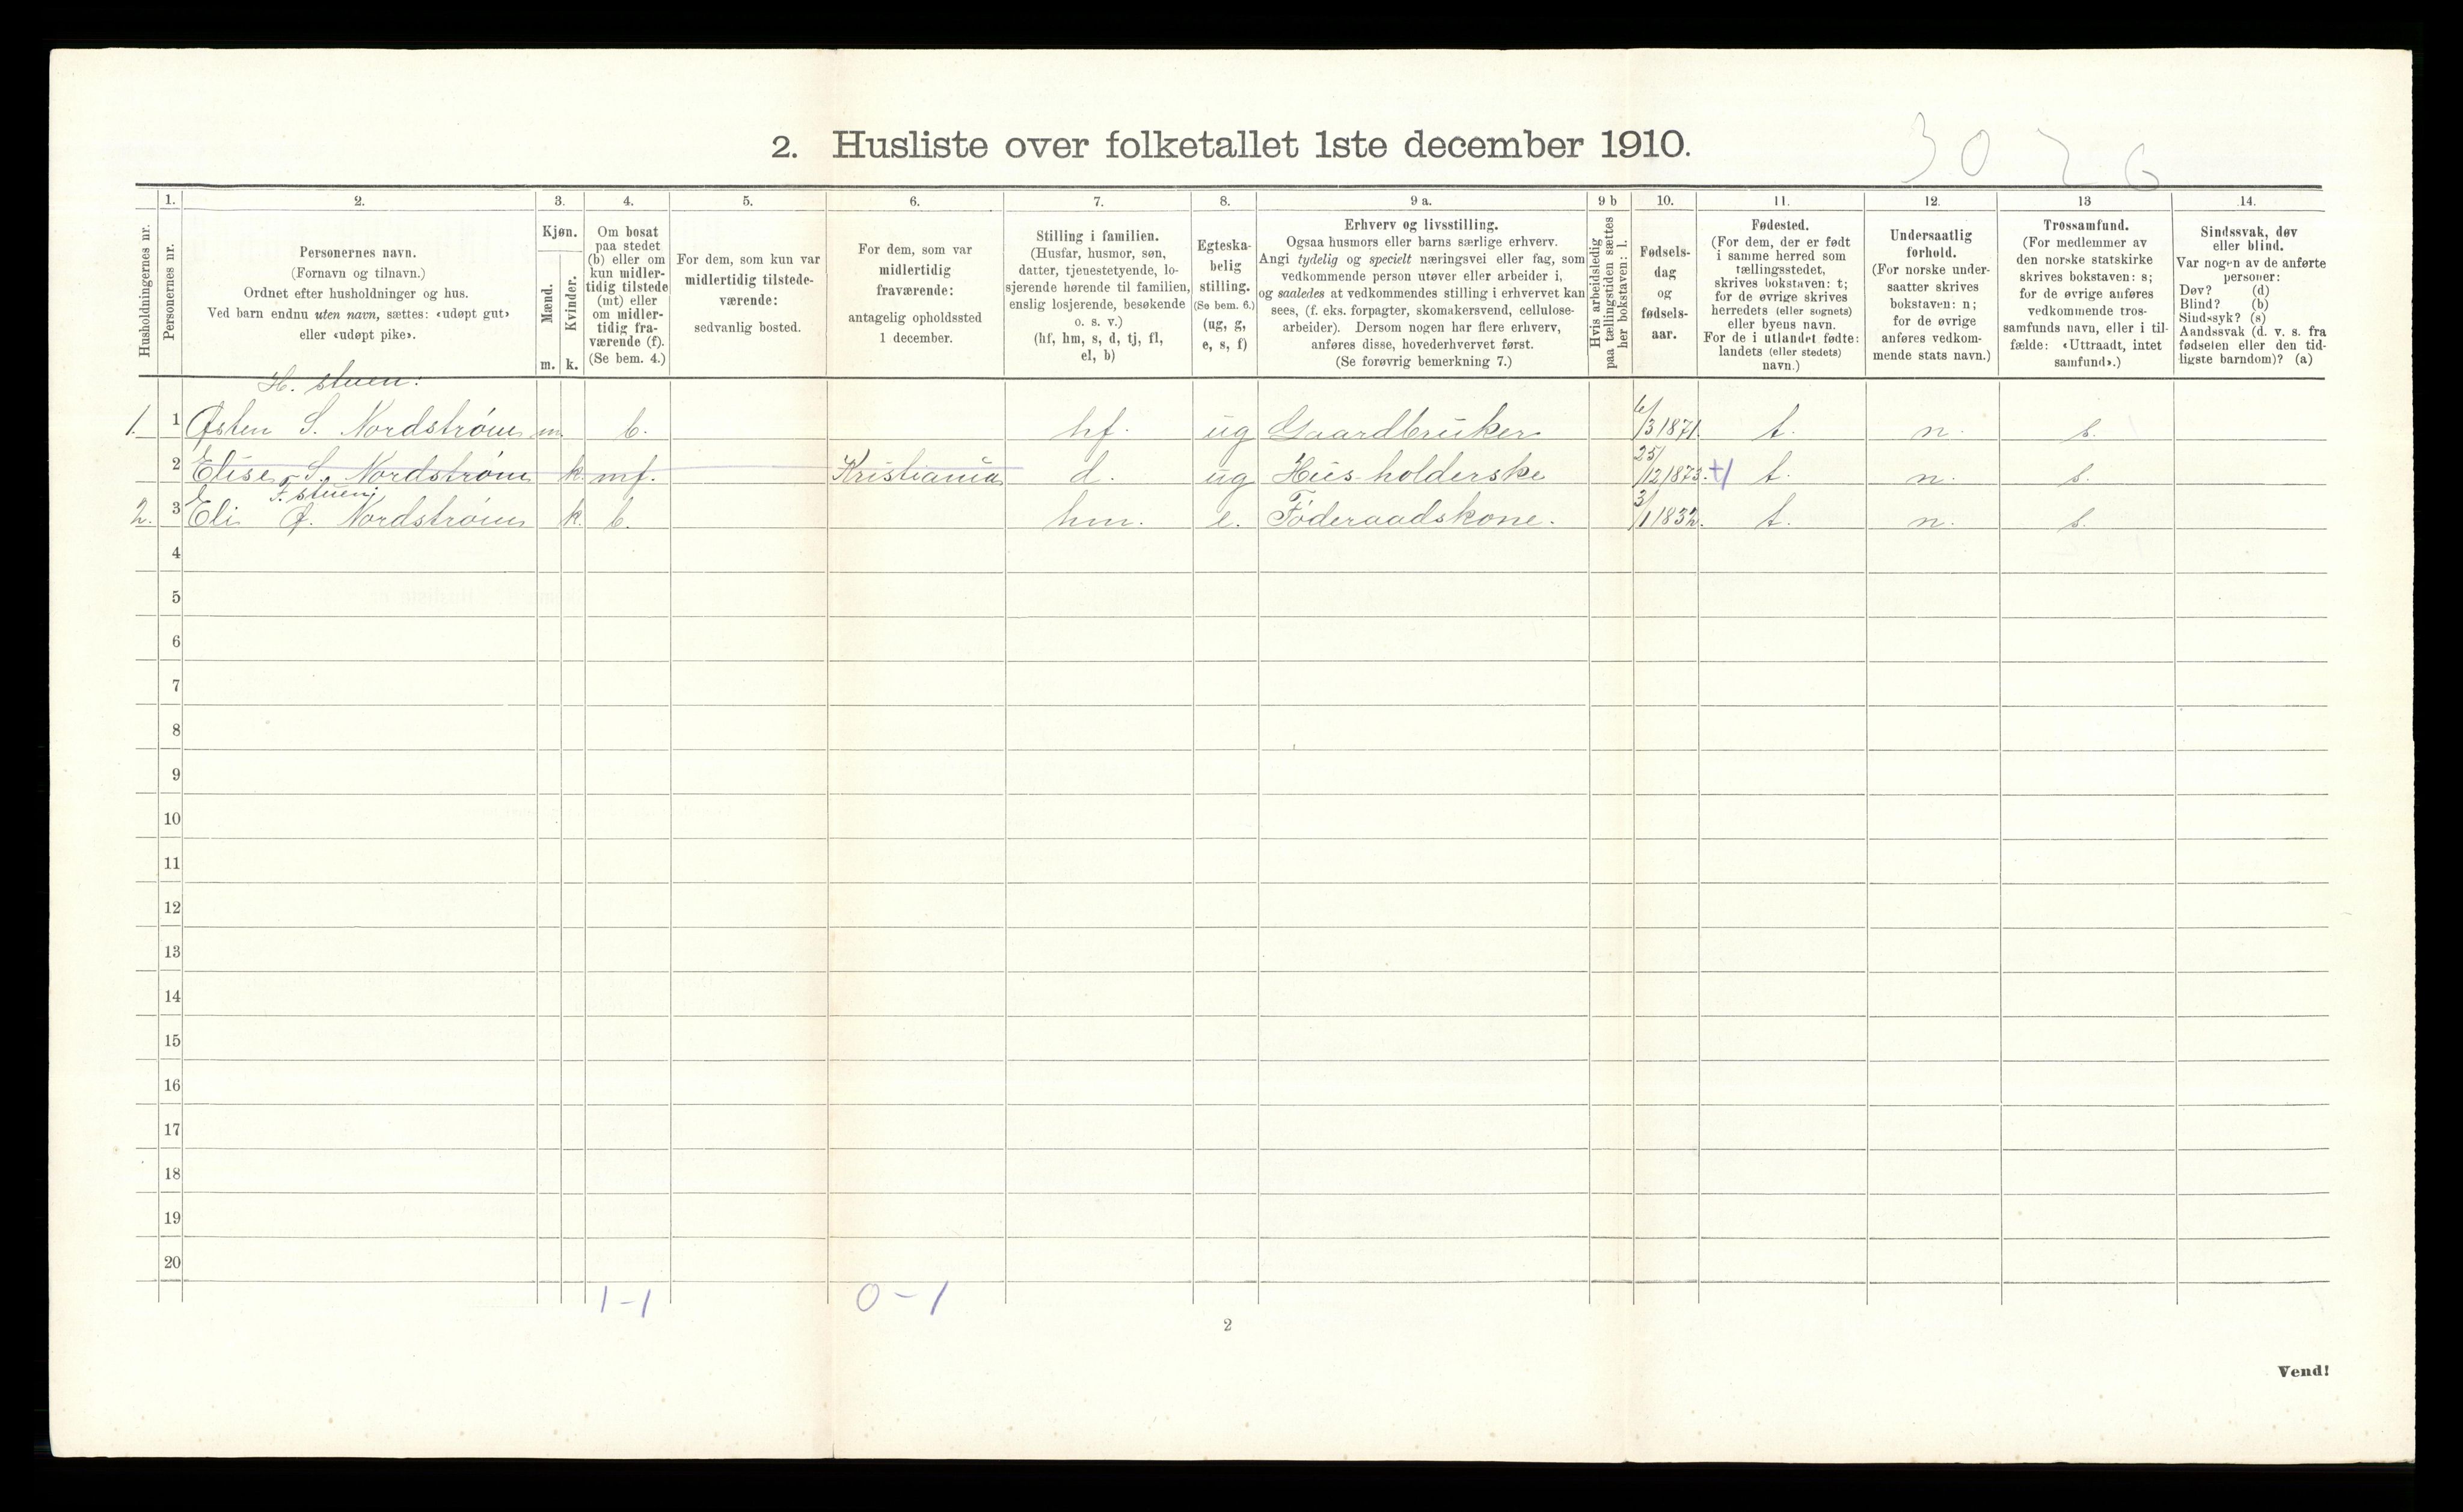 3026
2. Husliste over folketallet 1ste december 1910.
Husholdningernes nr.
1.
Personernes nr.
2.
Personernes navn.
(Fornavn og tilnavn.)
Ordnet efter husholdninger og hus.
Ved barn endnu uten navn, sættes: «udøpt gut»
eller «udøpt pike».
3.
Kjøn.
Mænd.
m.
Kvinder.
k.
4.
Om bosat
paa stedet
(b) eller om
kun midler-
tidig tilstede
(mt) eller
om midler-
tidig fra-
værende (f).
(Se bem. 4.)
5.
For dem, som kun var
midlertidig tilstede-
værende:
sedvanlig bosted.
6.
For dem, som var
midlertidig
fraværende:
antagelig opholdssted
1 december.
7.
Stilling i familien.
(Husfar, husmor, søn,
datter, tjenestetyende, lo-
sjerende hørende til familien,
enslig losjerende, besøkende
o. s. v.)
(hf, hm, s, d, tj, fl,
el, b)
8.
Egteska-
belig
stilling.
(Se bem. 6.)
(ug, g,
e, s, f)
9 a.
Erhverv og livsstilling.
Ogsaa husmors eller barns særlige erhverv.
Angi tydelig og specielt næringsvei eller fag, som
vedkommende person utøver eller arbeider i,
og saaledes at vedkommendes stilling i erhvervet kan
sees, (f. eks. forpagter, skomakersvend, cellulose-
arbeider). Dersom nogen har flere erhverv,
anføres disse, hovederhvervet først.
(Se forøvrig bemerkning 7.)
9 b
Hvis arbeidsledig
paa tællingstiden sættes
her bokstaven: l.
10.
Fødsels-
dag
og
fødsels-
aar.
11.
Fødested.
(For dem, der er født
i samme herred som
tællingsstedet,
skrives bokstaven: t;
for de øvrige skrives
herredets (eller sognets)
eller byens navn.
For de i utlandet fødte:
landets (eller stedets)
navn.)
12.
Undersaatlig
forhold.
(For norske under-
saatter skrives
bokstaven: n;
for de øvrige
anføres vedkom-
mende stats navn.)
13
Trossamfund.
(For medlemmer av
den norske statskirke
skrives bokstaven: s;
for de øvrige anføres
vedkommende tros-
samfunds navn, eller i til-
fælde: «Uttraadt, intet
samfund».)
14.
Sindssvak, døv
eller blind.
Var nogen av de anførte
personer:
Døv? (d)
Blind? (b)
Sindssyk? (s)
Aandssvak (d. v. s. fra
fødselen eller den tid-
ligste barndom)? (a)
H. stuen:
1. 1 Østen S. Nordstrøm m. b. hf. ug Gaardbruker 6/3 1871. t. n. s.
2 Elise S. Nordstrøm k. mf. Kristiania d. ug Husholderske 25/12 1873. t. n. s.
F. stuen;
2. 3 Eli Ø. Nordstrøm k. b. hm. e. Føderaadskone. 3/1 1832. t. n. s.
4
5
6
7
8
9
10
11
12
13
14
15
16
17
18
19
20
1-1 0-1
2
Vend!